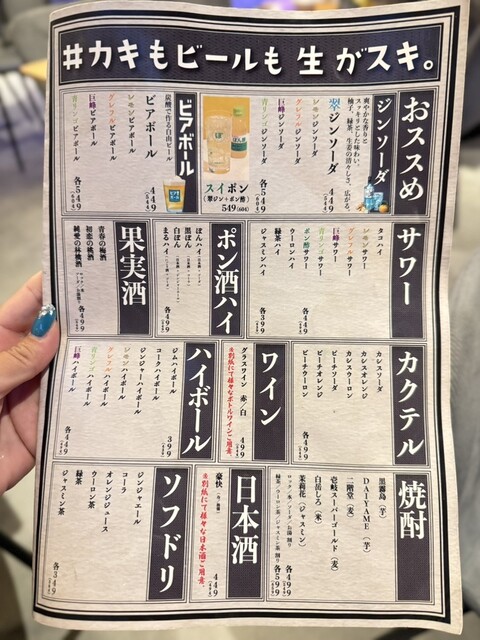 #カキもビールも生がスキ。
おススメ
ジンソーダ
爽やかな香りと
スッキリとした味わい。
柚子、緑茶、生姜の清々しさ、広がる。
翠ジンソーダ 449
レモンジンソーダ
グレフルジンソーダ
巨峰ジンソーダ
青リンゴジンソーダ
各549
スイポン
(翠ジン+ポン酢)
549(604)
ビアボール
炭酸で作る自由ビール
ビアボール 449
レモンビアボール
グレフルビアボール
巨峰ビアボール
青リンゴビアボール
各549
サワー
タコハイ
レモンサワー
グレフルサワー
巨峰サワー
青リンゴサワー
ポン酢サワー
各449
ウーロンハイ
緑茶ハイ
ジャスミンハイ
各399
ポン酒ハイ
ぽんハイ
黒ぽん
白ぽん
まるハイ
各499
果実酒
青春の梅酒
初恋の桃酒
純愛の林檎酒
各499
カクテル
カシスソーダ
カシスオレンジ
カシスウーロン
ピーチソーダ
ピーチオレンジ
ピーチウーロン
各499
ワイン
グラスワイン 赤/白
各499
※別紙にて様々なボトルワインご用意。
ハイボール
ジムハイボール 399
コークハイボール
ジンジャーハイボール
レモンハイボール
グレフルハイボール
青リンゴハイボール
巨峰ハイボール
各449
焼酎
黒霧島(芋)
DAIYAME(芋)
二階堂(麦)
壱岐スーパーゴールド(麦)
白岳しろ(米)
茉莉花(ジャスミン)
各499
各599
日本酒
豪快
449
※別紙にて様々な日本酒ご用意。
ソフドリ
ジンジャエール
コーラ
オレンジジュース
ウーロン茶
緑茶
ジャスミン茶
各349